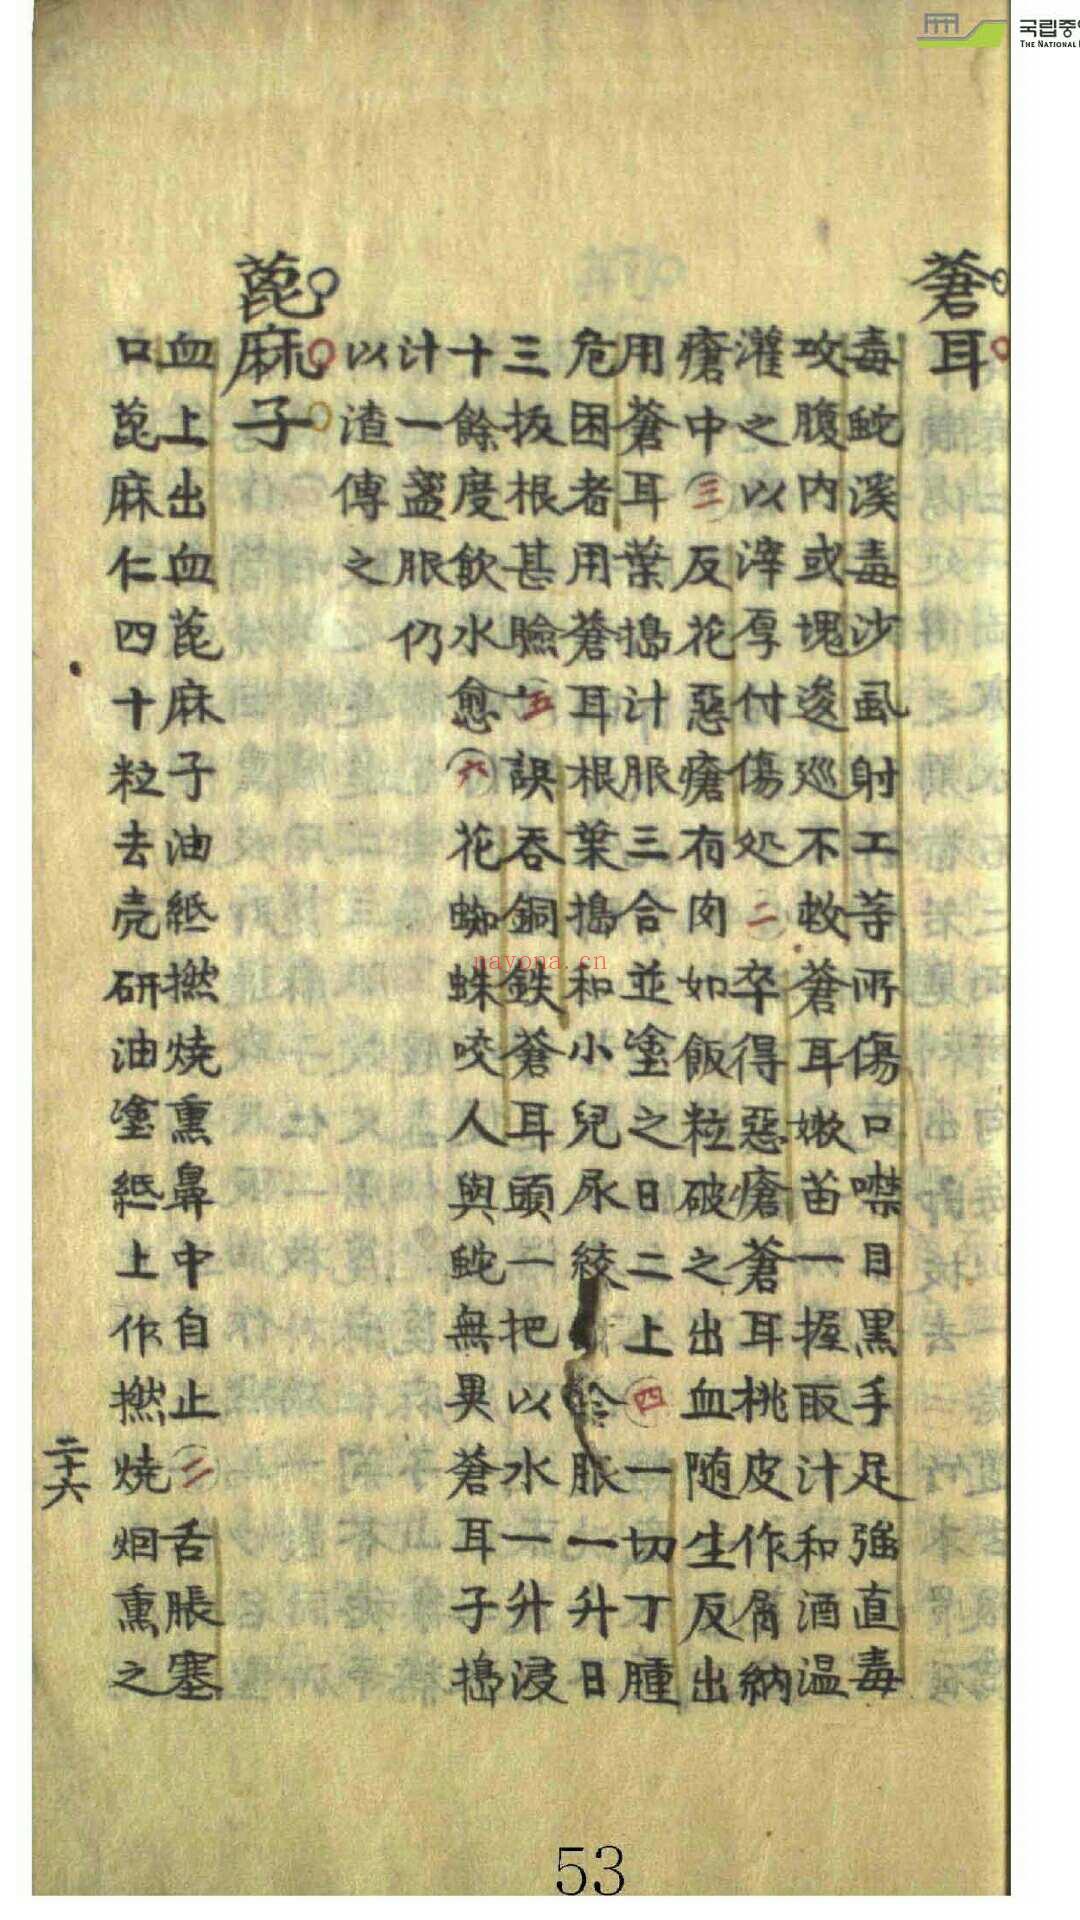 국립중
THE NATIONAL
蒼耳
毒蛇溪毒沙虱射工等所傷口噤目黑手足強直毒
攻腹内或塊逡巡不救蒼耳嫩苗一握取汁和酒温
灌之以滓厚付傷処二卒得惡瘡蒼耳桃皮作屑納
瘡中三反花惡瘡有肉如飯粒破之出血随生反出
用蒼耳葉搗汁服三合並塗之日二上四一切丁腫
危困者用蒼耳根葉搗和小兒尿絞服一升日
三拔根甚驗五誤吞銅鉄蒼耳頭一把以水一升浸
十餘度飲水愈六花蜘蛛咬人與蛇無異蒼耳子搗
汁一盞服仍
以渣傅之
蓖麻子
血上出血蓖麻子油紙撚燒熏鼻中自止二舌脹塞
口蓖麻仁四十粒去壳研油塗紙上作撚燒烟熏之
二十六
nayona.cn
53